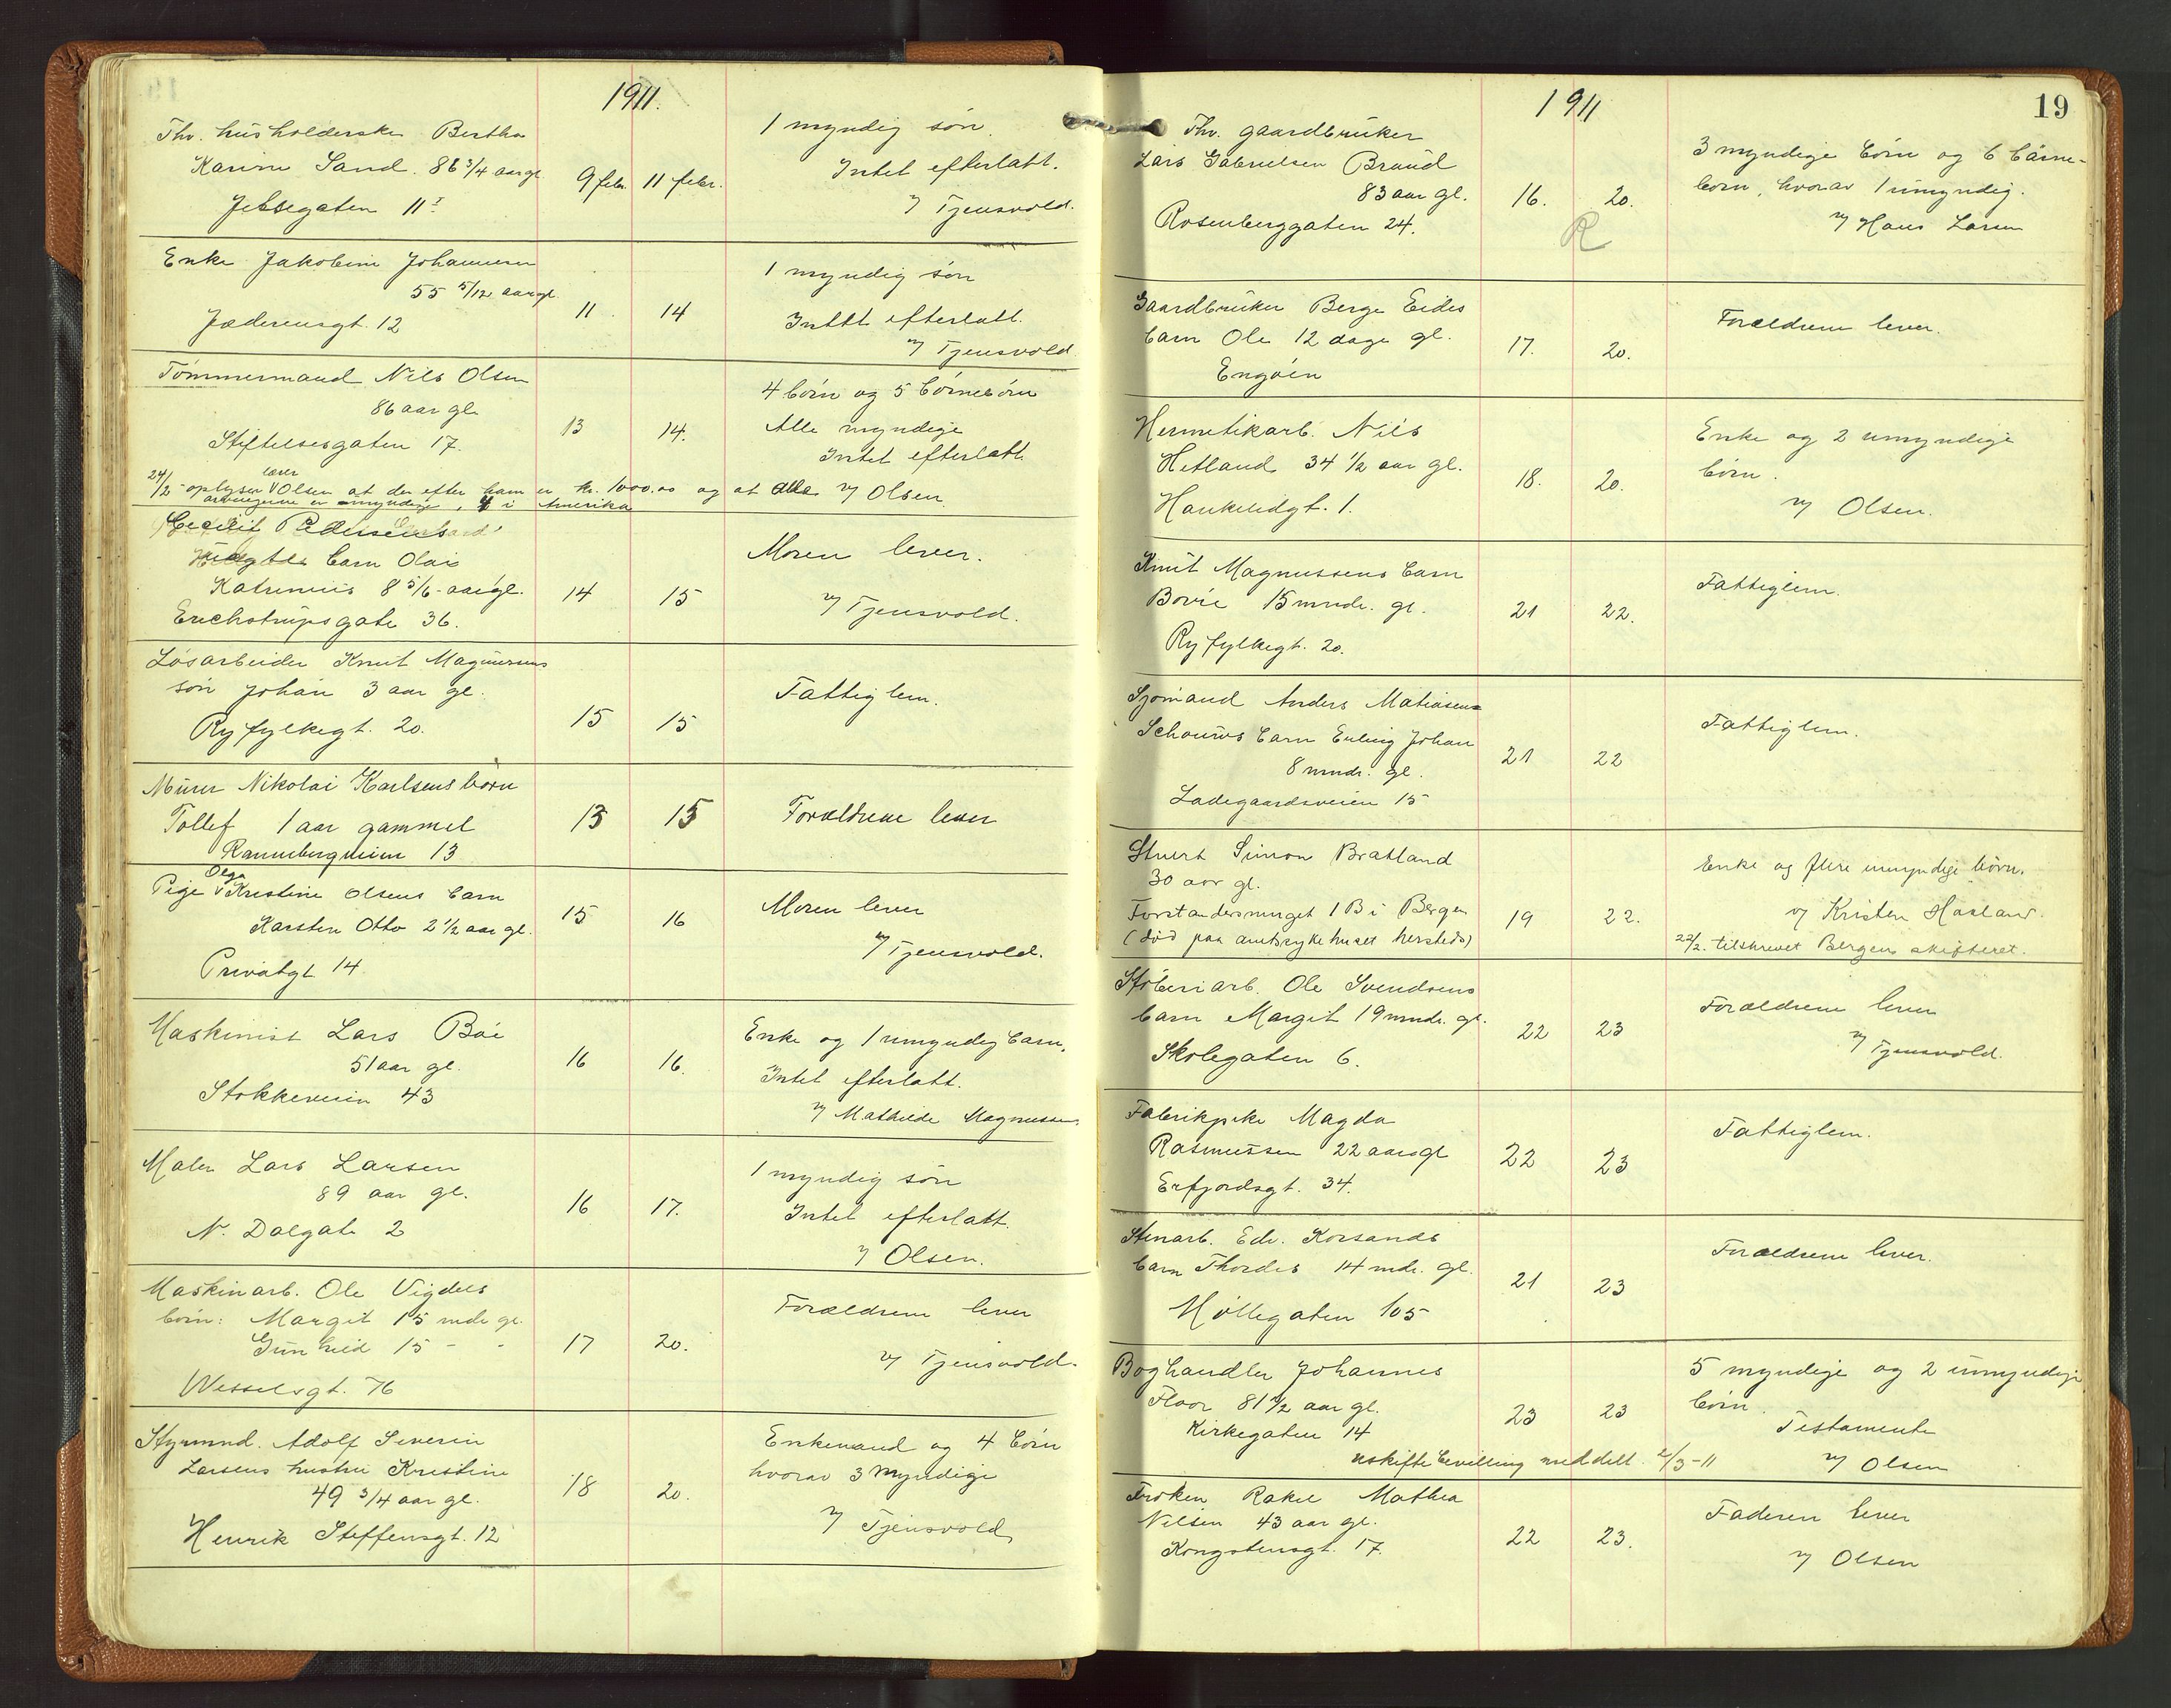 1911.
Thv. husholderske Bertha
Karine Sand. 86 3/4 aar gl
Jelsegaten 11 I
9 febr. 11 febr.
1 myndig søn.
Intet efterlatt.
v/ Tjensvold.
Enke Jakobine Johannesen
55 5/12 aar gl.
Jæderensgt. 12
11. 14
1 myndig søn
Intet efterlatt.
v/ Tjensvold
Tømmermand Nils Olsen
86 aar gl.
Stiftelsesgaten 17.
13 14.
4 børn og 5 børnebørn
Alle myndige
Intet efterlatt.
v/ Olsen
24/2 oplyser lærer Olsen at der efter ham er kr. 1000.00 og at alle
arvingerne er myndige, 4 i Amerika
Pedersen
barn Olai
Katrinius 8 5/6 aar gl.
Erichstrupsgate 36.
14 15
Moren lever.
v/ Tjensvold.
Løsarbeider Knut Magnussens
søn Johan 3 aar gl.
Ryfylkegt. 20.
15 15
Fattiglem.
Murer Nikolai Karlsens barn
Tollef 1 aar gammel
Rannebergveien 13
13 15
Forældrene lever
Pige Olga Kristine Olsens barn
Karsten Otto 2 1/2 aar gl.
Privatgt 14
15 16
Moren lever
v/ Tjensvold.
Maskinist Lars Bøe
51 aar gl.
Stokkeveien 43
16 16.
Enke og 1 umyndig barn.
Intet efterlatt.
v/ Mathilde Magnussen.
Maler Lars Larsen
89 aar gl.
N. Dalgate 2
16 17.
1 myndig søn
Intet efterlatt.
v/ Olsen.
Maskinarb. Ole Vigdels
børn: Margit 15 mdr gl.
Gunhild 15 - -
Wesselsgt. 76
17 20.
Forældrene lever
v/ Tjensvold.
Styrmnd. Adolf Severin
Larsens hustru Kristine
49 3/4 aar gl.
Henrik Steffensgt. 12
18 20.
Enkemand og 4 børn
hvorav 3 myndige
v/ Tjensvold
1911
19
Thv. gaardbruker
Lars Gabrielsen Braud
83 aar gl.
Rosenberggaten 24.
16. 20.
R
3 myndige børn og 6 barne-
børn, hvorav 1 umyndig.
v/ Hans Larsen
Gaardbruker Berge Eides
barn Ole 12 dage gl.
Engøen
17. 20.
Forældrene lever.
Hermetikarb. Nils
Hetland 34 1/2 aar gl.
Haukelidgt. 1.
18. 20.
Enke og 2 umyndige
børn.
v/ Olsen.
Knut Magnussens barn
15 mndr. gl.
Ryfylkegt. 20.
21 22.
Fattiglem.
Sjømand Anders Matiasen
Schouws barn Erling Johan
8 mndr. gl.
Ladegaardsveien 15
21 22
Fattiglem.
Stuert Simon Bratland
30 aar gl.
Forstandersmuget 1 B i Bergen
(død paa amtssykehuset hersteds)
19 22.
Enke og flere umyndige børn.
v/ Kristen Hasland.
22/2. tilskrevet Bergens skifteret.
Støberiarb. Ole Svendsens
barn Margit 19 mndr. gl.
Skolegaten 6.
22 23
Forældrene lever
v/ Tjensvold.
Fabrikpike Magda
Rasmussen 22 aar gl
Erfjordsgt. 34.
22 23
Fattiglem.
Stenarb. Edv. Korsands
barn Thordis 14 mdr. gl.
Møllegaten 105
21 23
Forældrene lever.
Boghandler Johannes
Floor 81 1/2 aar gl.
Kirkegaten 14
23 23
5 myndige og 2 umyndige
børn.
Testamente
v/ Olsen
uskiftebevilling meddelt 2/3-11
Frøken Rakel Mathea
Nilsen 43 aar gl.
Kongstensgt. 17.
22 23.
Faderen lever
v/ Olsen